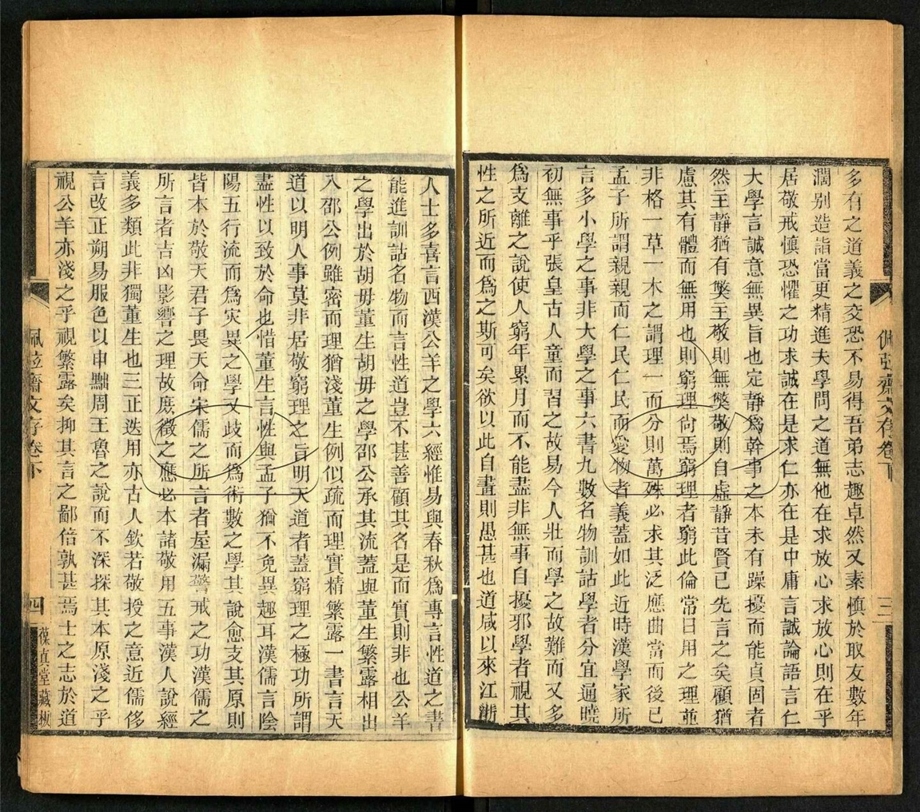 多有之道義之交恐不易得吾弟志趣卓然又素慎於取友數年
濶別造詣當更精進夫學問之道無他在求放心求放心則在乎
居敬戒慎恐懼之功求誠在是求仁亦在是中庸言誠論語言仁
大學言誠意無異旨也定靜爲幹事之本未有躁擾而能貞固者
然主靜猶有弊主敬則無弊敬則自虛靜昔賢已先言之矣顧猶
慮其有體而無用也則窮理尚焉窮理者窮此倫常日用之理並
非格一草一木之謂理一而分則萬殊必求其泛應曲當而後已
孟子所謂親親而仁民仁民而愛物者義蓋如此近時漢學家所
言多小學之事非大學之事六書九數名物訓詁學者分宜通曉
初無事乎張皇古人童而習之故易今人壯而學之故難而又多
爲支離之說使人窮年累月而不能盡非無事自擾邪學者視其
性之所近而爲之斯可矣欲以此自畫則愚甚也道咸以來江浙
佩弦齋文存卷下
三
人士多喜言西漢公羊之學六經惟易與春秋爲專言性道之書
能進訓詁名物而言性道豈不甚善顧其名是而實則非也公羊
之學出於胡毋董生胡毋之學邵公承其流蓋與董生繁露相出
入邵公例雖密而理猶淺董生例似疏而理實精繁露一書言天
道以明人事莫非居敬窮理之旨明天道者蓋窮理之極功所謂
盡性以致於命也惜董生言性與孟子猶不免異趣耳漢儒言陰
陽五行流而爲災異之學又歧而爲術數之學其說愈支其原則
皆本於敬天君子畏天命宋儒之所言者屋漏警戒之功漢儒之
所言者吉凶影響之理故庶徵之應必本諸敬用五事漢人說經
義多類此非獨董生也三正迭用亦古人欽若敬授之意近儒侈
言改正朔易服色以申黜周王魯之說而不深探其本原淺之乎
視公羊亦淺之乎視繁露矣抑其言之鄙倍孰甚焉士之志於道
佩弦齋文存卷下
四
葆真堂藏板